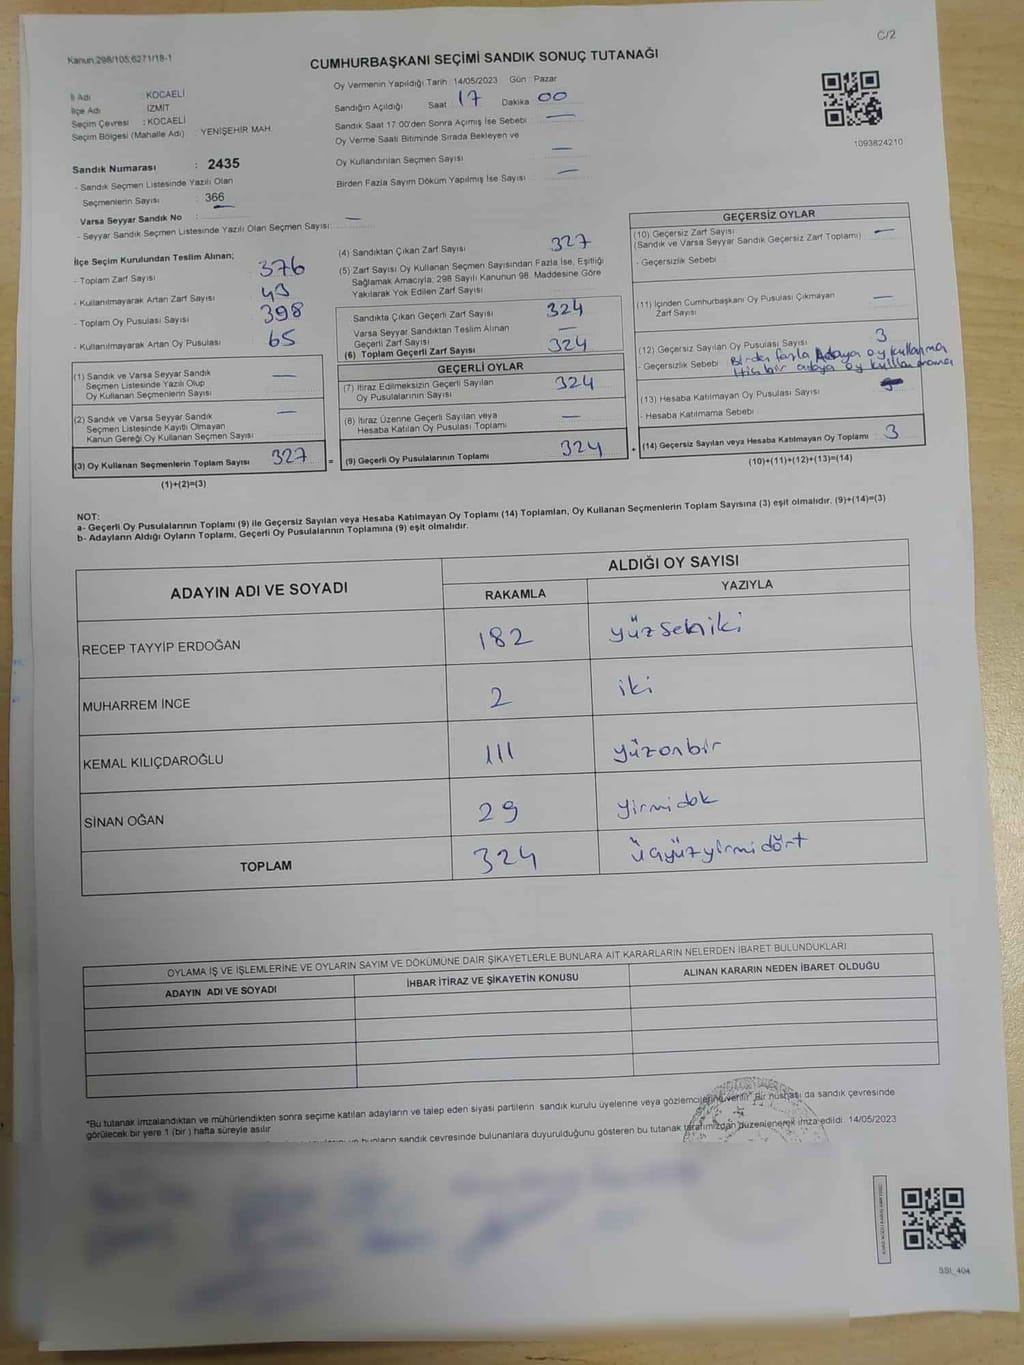 Kanun,298/105;6271/18-1
C/2
CUMHURBAŞKANI SEÇİMİ SANDIK SONUÇ TUTANAĞI
İl Adı : KOCAELİ
İlçe Adı İZMİT
Seçim Çevresi : KOCAELİ
Seçim Bölgesi (Mahalle Adı) YENİŞEHİR MAH.
Oy Vermenin Yapıldığı Tarih : 14/05/2023 Gün : Pazar
Sandığın Açıldığı Saat 17 Dakika 00
Sandık Saat 17:00'den Sonra Açımış İse Sebebi : —
Oy Verme Saati Bitiminde Sırada Bekleyen ve
Oy Kullandırılan Seçmen Sayısı : —
Birden Fazla Sayım Döküm Yapılmış İse Sayısı : —
1093824210
Sandık Numarası : 2435
- Sandık Seçmen Listesinde Yazılı Olan
Seçmenlerin Sayısı : 366
Varsa Seyyar Sandık No :
- Seyyar Sandık Seçmen Listesinde Yazılı Olan Seçmen Sayısı: —
İlçe Seçim Kurulundan Teslim Alınan;
- Toplam Zarf Sayısı : 376
- Kullanılmayarak Artan Zarf Sayısı : 49
- Toplam Oy Pusulası Sayısı : 398
- Kullanılmayarak Artan Oy Pusulası : 65
(1) Sandık ve Varsa Seyyar Sandık
Seçmen Listesinde Yazılı Olup
Oy Kullanan Seçmenlerin Sayısı : —
(2) Sandık ve Varsa Seyyar Sandık
Seçmen Listesinde Kayıtlı Olmayan
Kanun Gereği Oy Kullanan Seçmen Sayısı : —
(3) Oy Kullanan Seçmenlerin Toplam Sayısı : 327
(1)+(2)=(3)
(4) Sandıktan Çıkan Zarf Sayısı : 327
(5) Zarf Sayısı Oy Kullanan Seçmen Sayısından Fazla İse, Eşitliği
Sağlamak Amacıyla, 298 Sayılı Kanunun 98. Maddesine Göre
Yakılarak Yok Edilen Zarf Sayısı :
Sandıkta Çıkan Geçerli Zarf Sayısı : 324
Varsa Seyyar Sandıktan Teslim Alınan
Geçerli Zarf Sayısı : —
(6) Toplam Geçerli Zarf Sayısı : 324
GEÇERLİ OYLAR
(7) İtiraz Edilmeksizin Geçerli Sayılan
Oy Pusulalarının Sayısı : 324
(8) İtiraz Üzerine Geçerli Sayılan veya
Hesaba Katılan Oy Pusulası Toplamı : —
= (9) Geçerli Oy Pusulalarının Toplamı : 324
GEÇERSİZ OYLAR
(10) Geçersiz Zarf Sayısı : —
(Sandık ve Varsa Seyyar Sandık Geçersiz Zarf Toplamı)
- Geçersizlik Sebebi :
(11) İçinden Cumhurbaşkanı Oy Pusulası Çıkmayan
Zarf Sayısı : —
(12) Geçersiz Sayılan Oy Pusulası Sayısı : 3
- Geçersizlik Sebebi : Birden fazla Adaya oy kullanma
Hiç bir adaya oy kullanmama
(13) Hesaba Katılmayan Oy Pusulası Sayısı :
- Hesaba Katılmama Sebebi :
+ (14) Geçersiz Sayılan veya Hesaba Katılmayan Oy Toplamı : 3
(10)+(11)+(12)+(13)=(14)
NOT:
a- Geçerli Oy Pusulalarının Toplamı (9) ile Geçersiz Sayılan veya Hesaba Katılmayan Oy Toplamı (14) Toplamları, Oy Kullanan Seçmenlerin Toplam Sayısına (3) eşit olmalıdır. (9)+(14)=(3)
b- Adayların Aldığı Oyların Toplamı, Geçerli Oy Pusulalarının Toplamına (9) eşit olmalıdır.
ADAYIN ADI VE SOYADI ALDIĞI OY SAYISI
RAKAMLA YAZIYLA
RECEP TAYYİP ERDOĞAN 182 yüzseksiniki
MUHARREM İNCE 2 iki
KEMAL KILIÇDAROĞLU 111 yüzonbir
SİNAN OĞAN 29 yirmidok
TOPLAM 324 üçyüzyirmidört
OYLAMA İŞ VE İŞLEMLERİNE VE OYLARIN SAYIM VE DÖKÜMÜNE DAİR ŞİKAYETLERLE BUNLARA AİT KARARLARIN NELERDEN İBARET BULUNDUKLARI
ADAYIN ADI VE SOYADI İHBAR İTİRAZ VE ŞİKAYETİN KONUSU ALINAN KARARIN NEDEN İBARET OLDUĞU
*Bu tutanak imzalandıktan ve mühürlendikten sonra seçime katılan adayların ve talep eden siyasi partilerin sandık kurulu üyelerine veya gözlemcilerine verilir. Bir nüshası da sandık çevresinde
görülecek bir yere 1 (bir ) hafta süreyle asılır.
bunların sandık çevresinde bulunanlara duyurulduğunu gösteren bu tutanak tarafımızdan düzenlenerek imza edildi. 14/05/2023
SSI_404